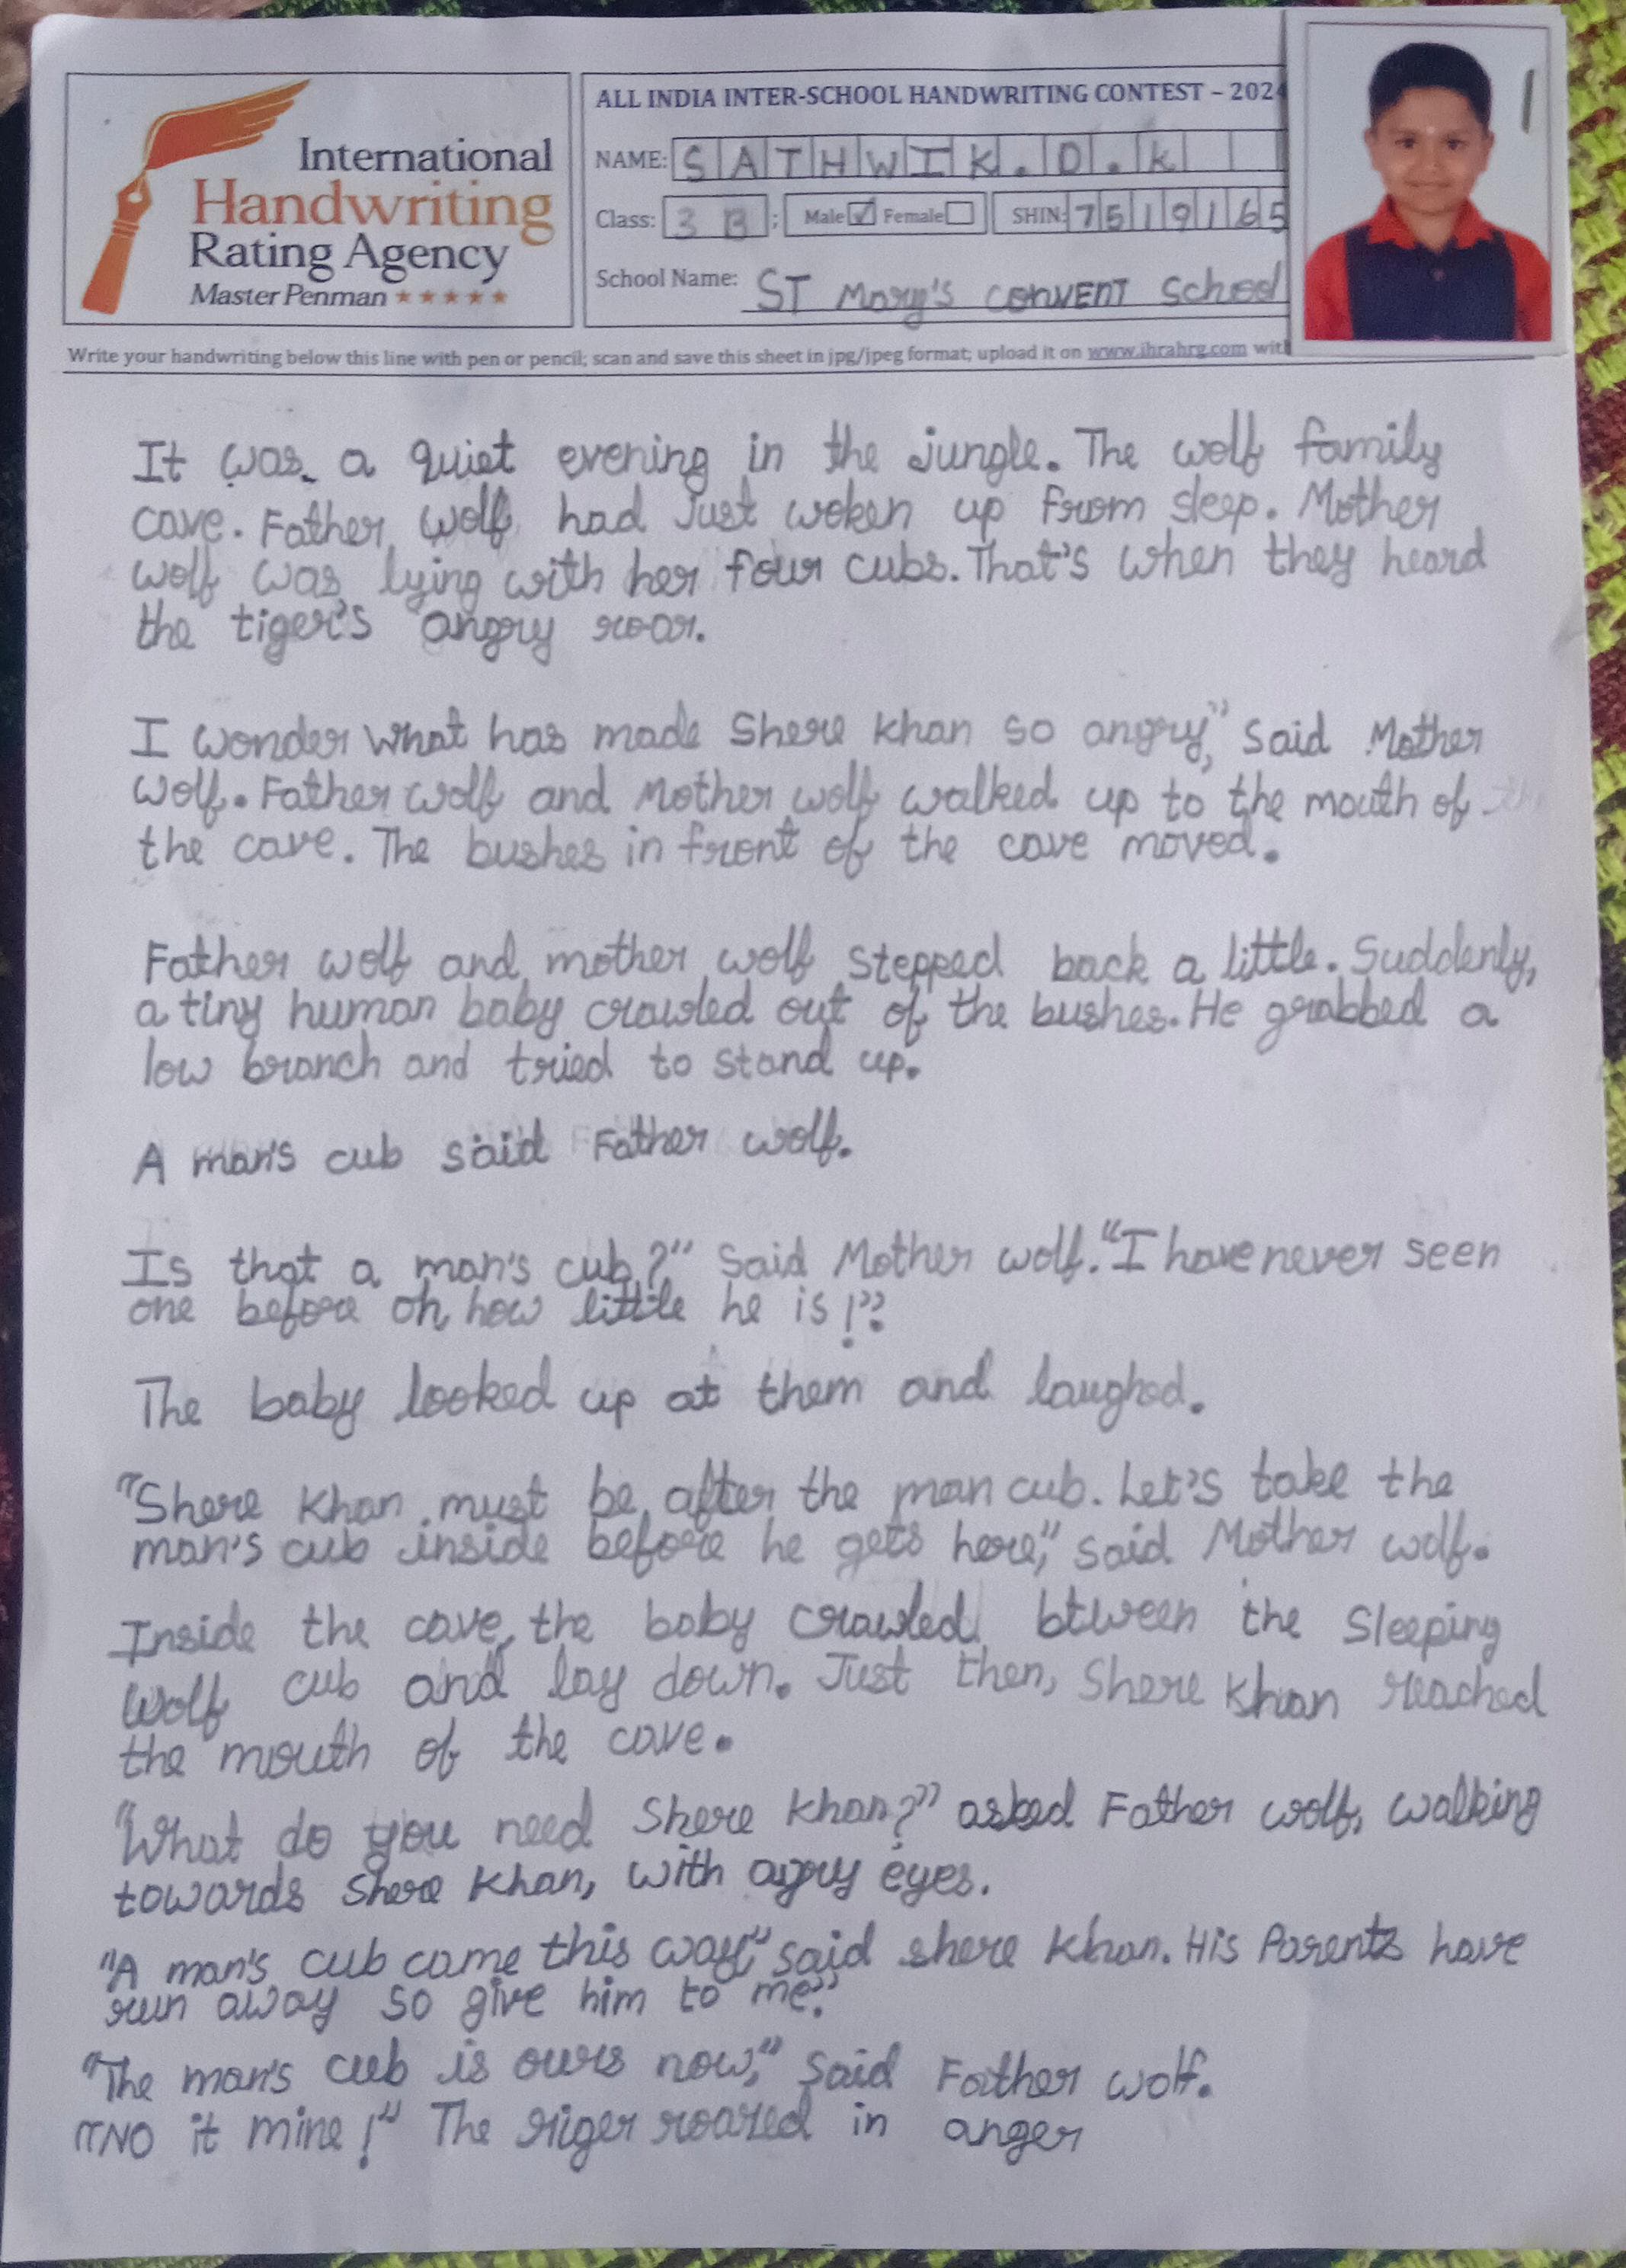 International
Handwriting
Rating Agency
Master Penman ★★★★★
ALL INDIA INTER-SCHOOL HANDWRITING CONTEST – 2024
NAME: SATHWIK.D.K
Class: 3 B ; Male ✓ Female SHIN: 7519165
School Name: ST Mary's CONVENT School
Write your handwriting below this line with pen or pencil; scan and save this sheet in jpg/jpeg format; upload it on www.ihrahrg.com with
It was a quiet evening in the jungle. The wolf family
cave. Father wolf had Just woken up from sleep. Mother
wolf was lying with her four cubs. That's when they heard
the tiger's angry roar.
I wonder what has made Shere khan so angry," Said Mother
wolf. Father wolf and Mother wolf walked up to the mouth of
the cave. The bushes in front of the cave moved.
Father wolf and mother wolf stepped back a little. Suddenly,
a tiny human baby crawled out of the bushes. He grabbed a
low branch and tried to stand up.
A man's cub said Father wolf.
Is that a man's cub?" Said Mother wolf. "I have never seen
one before oh, how little he is!"
The baby looked up at them and laughed.
"Shere Khan must be after the man cub. Let's take the
man's cub inside before he gets here," said Mother wolf.
Inside the cave, the baby crawled btween the Sleeping
wolf cub and lay down. Just then, Shere Khan reached
the mouth of the cave.
"What do you need Shere Khan?" asked Father wolf, walking
towards Shere Khan, with agry eyes.
"A man's cub came this way" said shere Khan. His Parents have
run away so give him to me."
"The man's cub is ours now," Said Father wolf.
"NO it mine!" The roared in anger